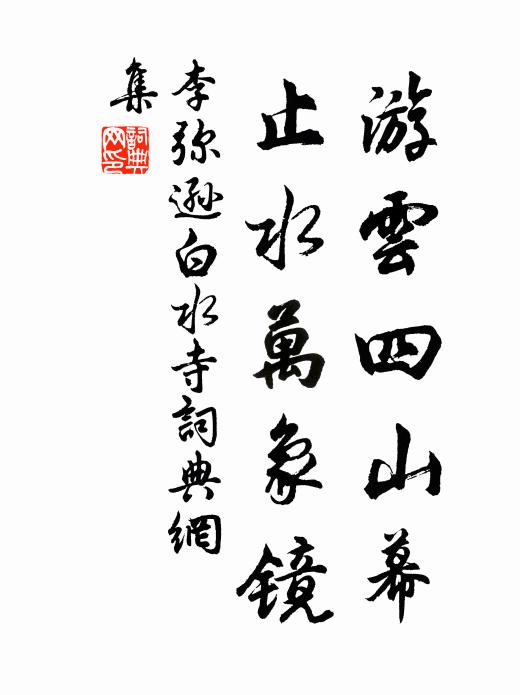 游雲四山幕
止水萬象鏡
李弥遜白水寺詞典網
集
詞典
网印